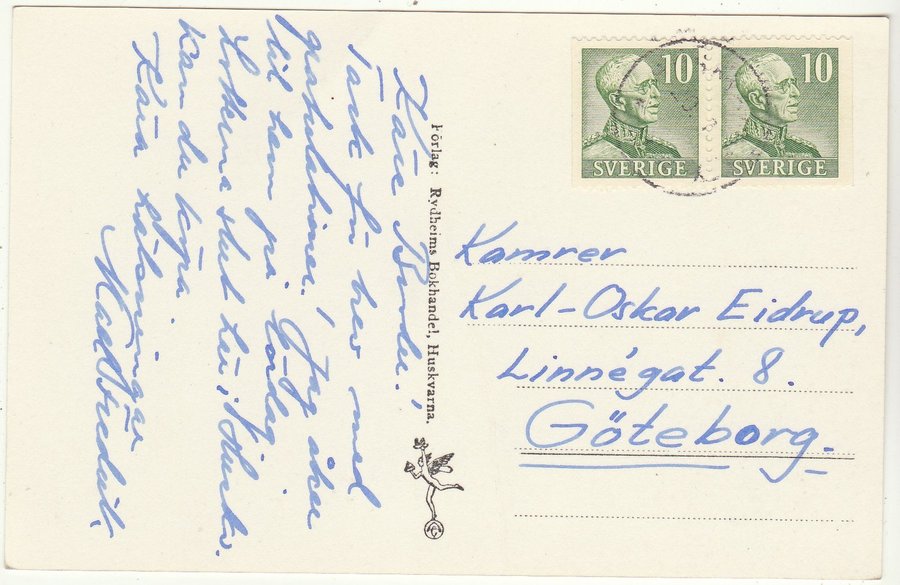 Käre
Tack för brev med
gratulationer! Jag åker
hem på lördag.
slut här i Huskv.
Kan du köpa.
Kära hälsningar
Förlag: Rydheims Bokhandel, Huskvarna.
10
SVERIGE
10
SVERIGE
Kamrer
Karl-Oskar Eidrup,
Linnégat. 8.
Göteborg.